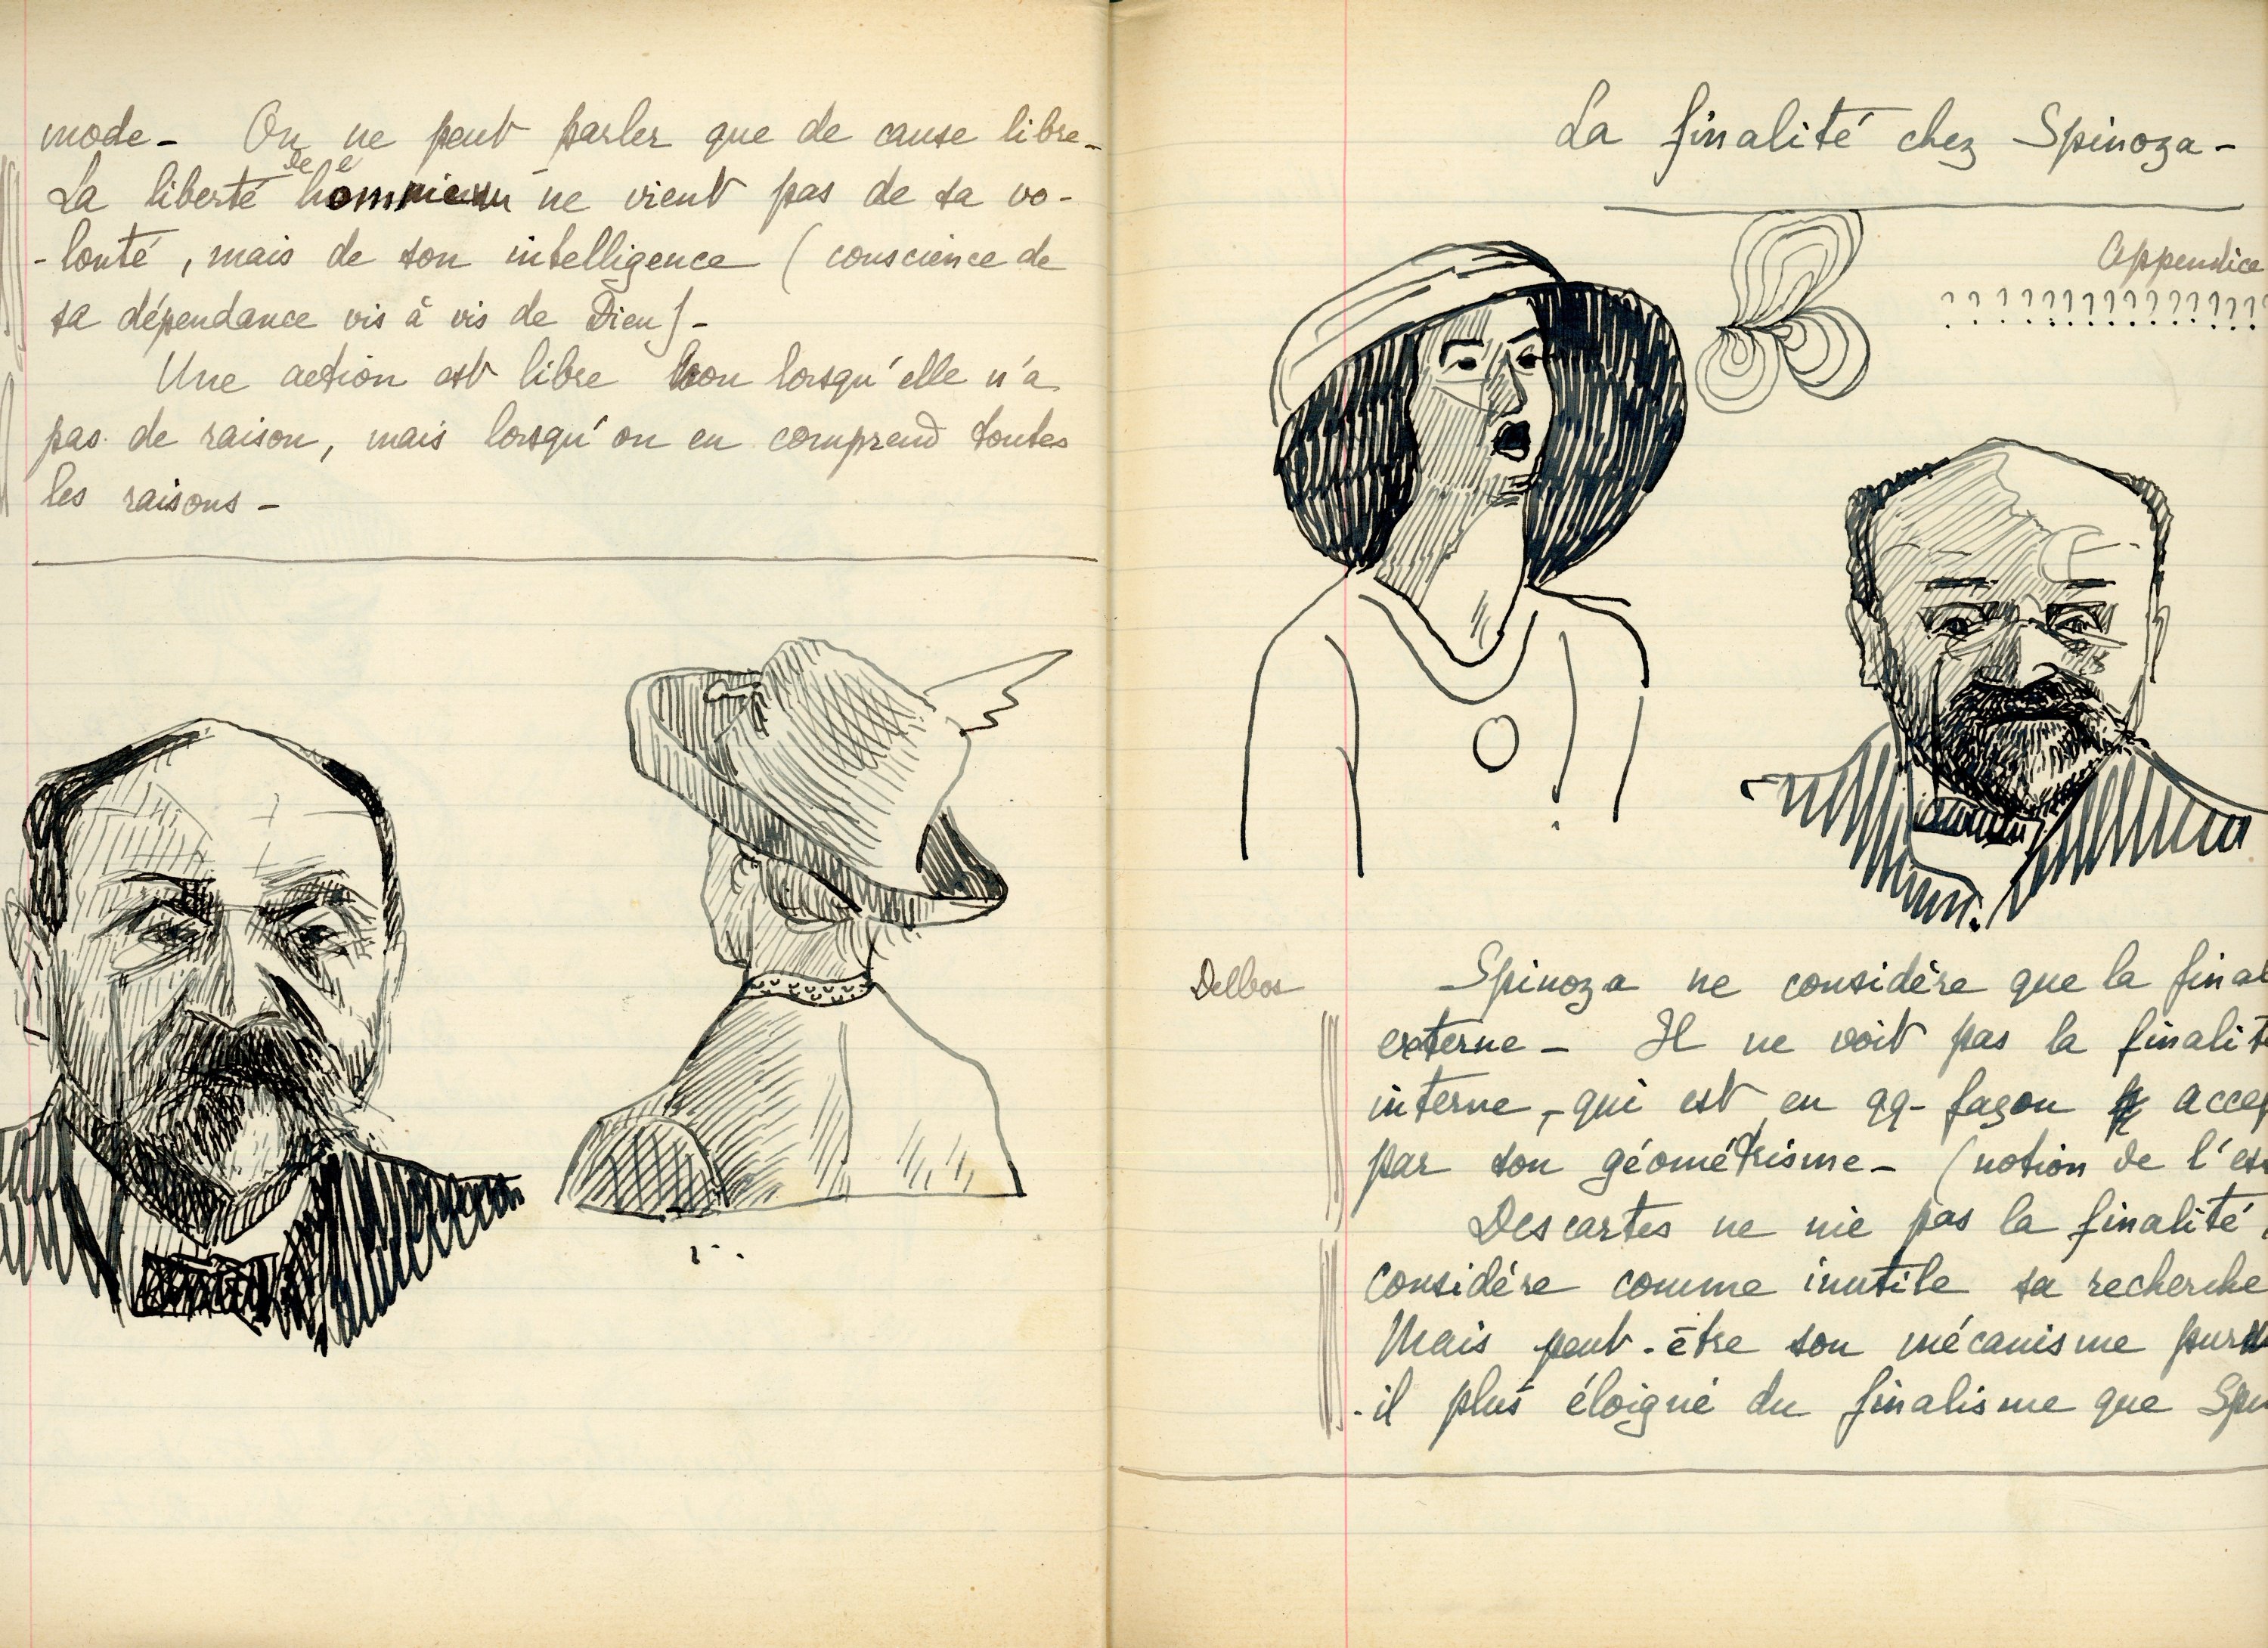 mode- On ne peut parler que de cause libre-
La liberté de l' homme ne vient pas de sa vo-
-lonté, mais de son intelligence (conscience de
sa dépendance vis à vis de Dieu)-
Une action est libre non lorsqu'elle n'a
pas de raison, mais lorsqu'on en comprend toutes
les raisons-
La finalité chez Spinoza-
Appendice
? ? ? ? ? ? ? ? ? ? ? ? ? ?
Delbos
Spinoza ne considère que la final
externe- Il ne voit pas la finalité
interne, -qui est en qq- façon accep
par son géométrisme- (notion de l'es
Descartes ne nie pas la finalité,
considère comme inutile sa recherche
Mais peut-être son mécanisme pur
-il plus éloigné du finalisme que Spi